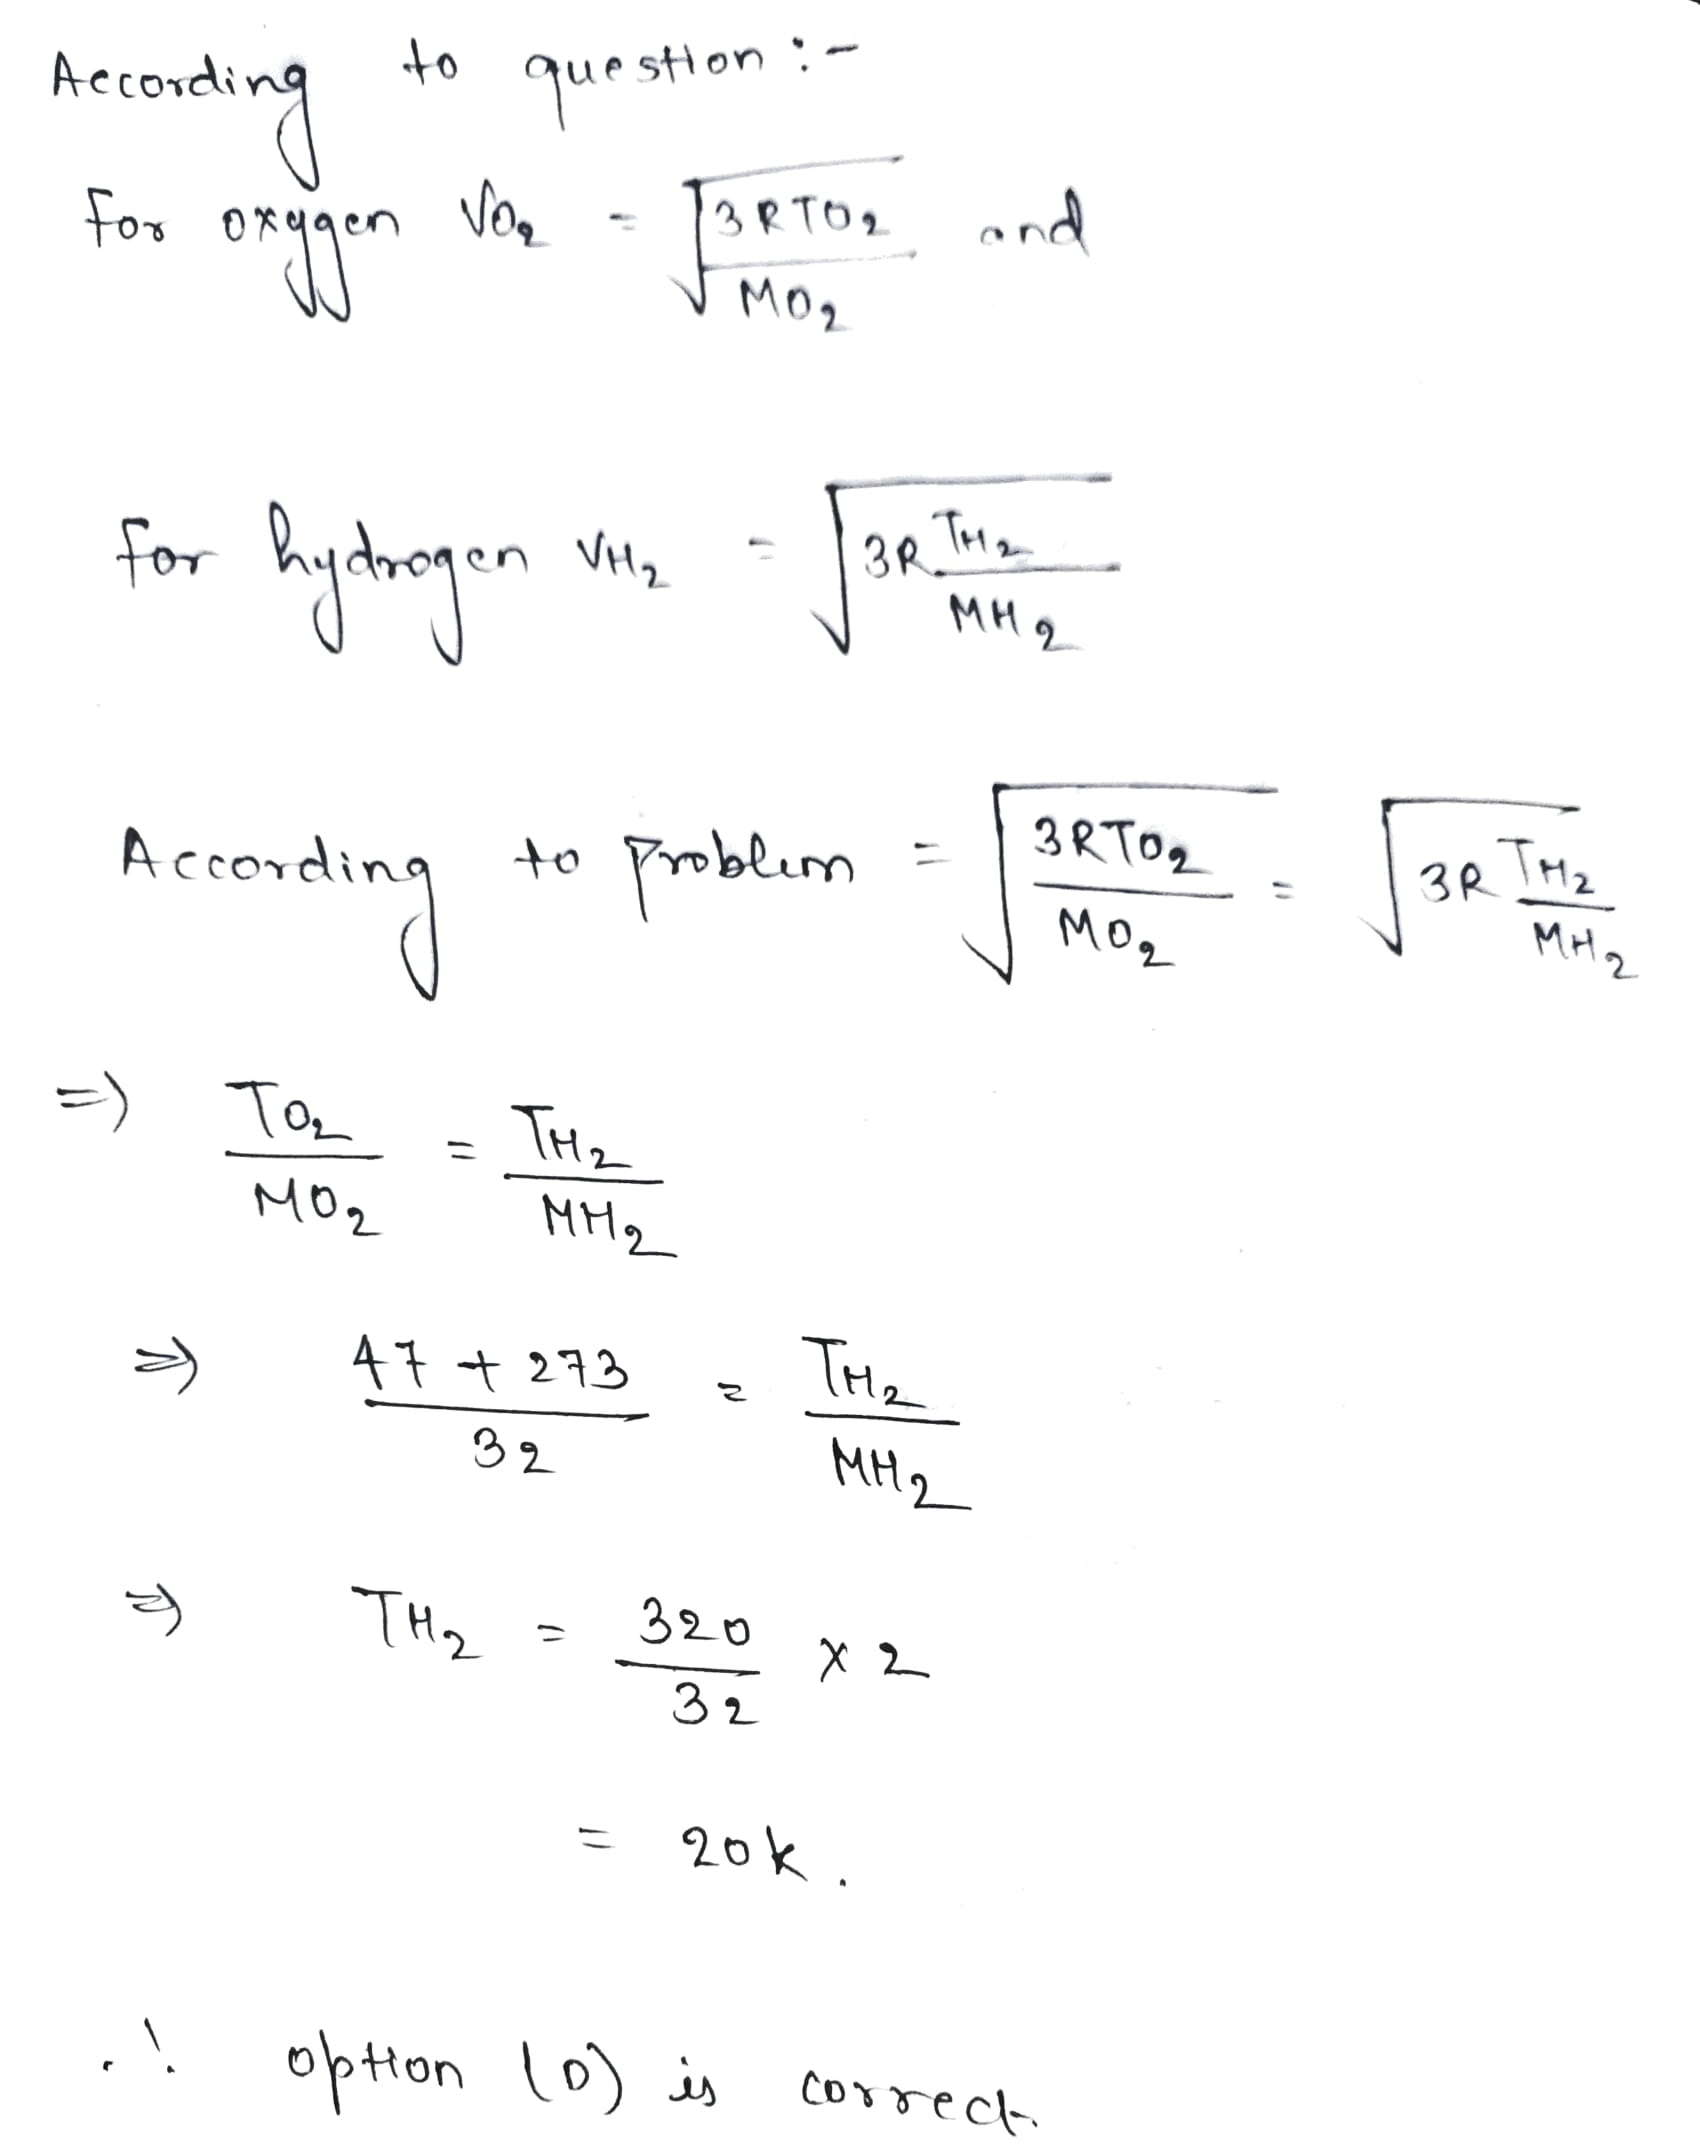 According to question :-
For oxygen VO₂ = √(3RTO₂/MO₂) and
for hydrogen VH₂ = √(3R TH₂/MH₂)
According to problem = √(3RTO₂/MO₂) = √(3R TH₂/MH₂)
=) TO₂/MO₂ = TH₂/MH₂
=) (47 + 273)/32 = TH₂/MH₂
=) TH₂ = 320/32 × 2
= 20k.
∴ option (D) is correct